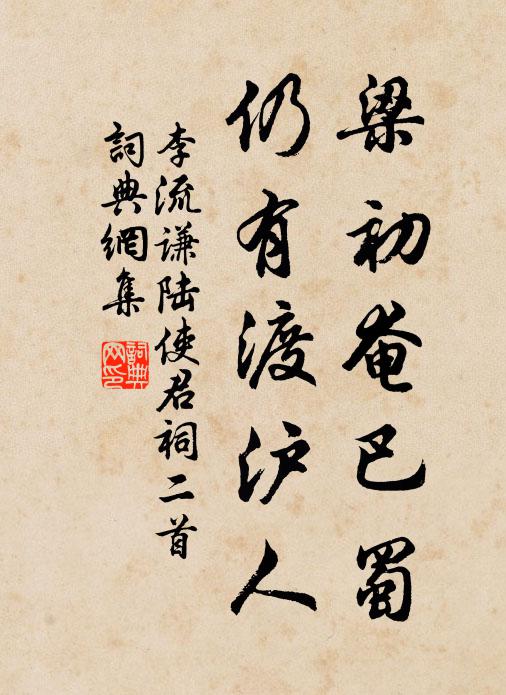 梁初奄巴蜀
仍有渡沪人
李流谦陆使君祠二首
詞典網集
詞典網印